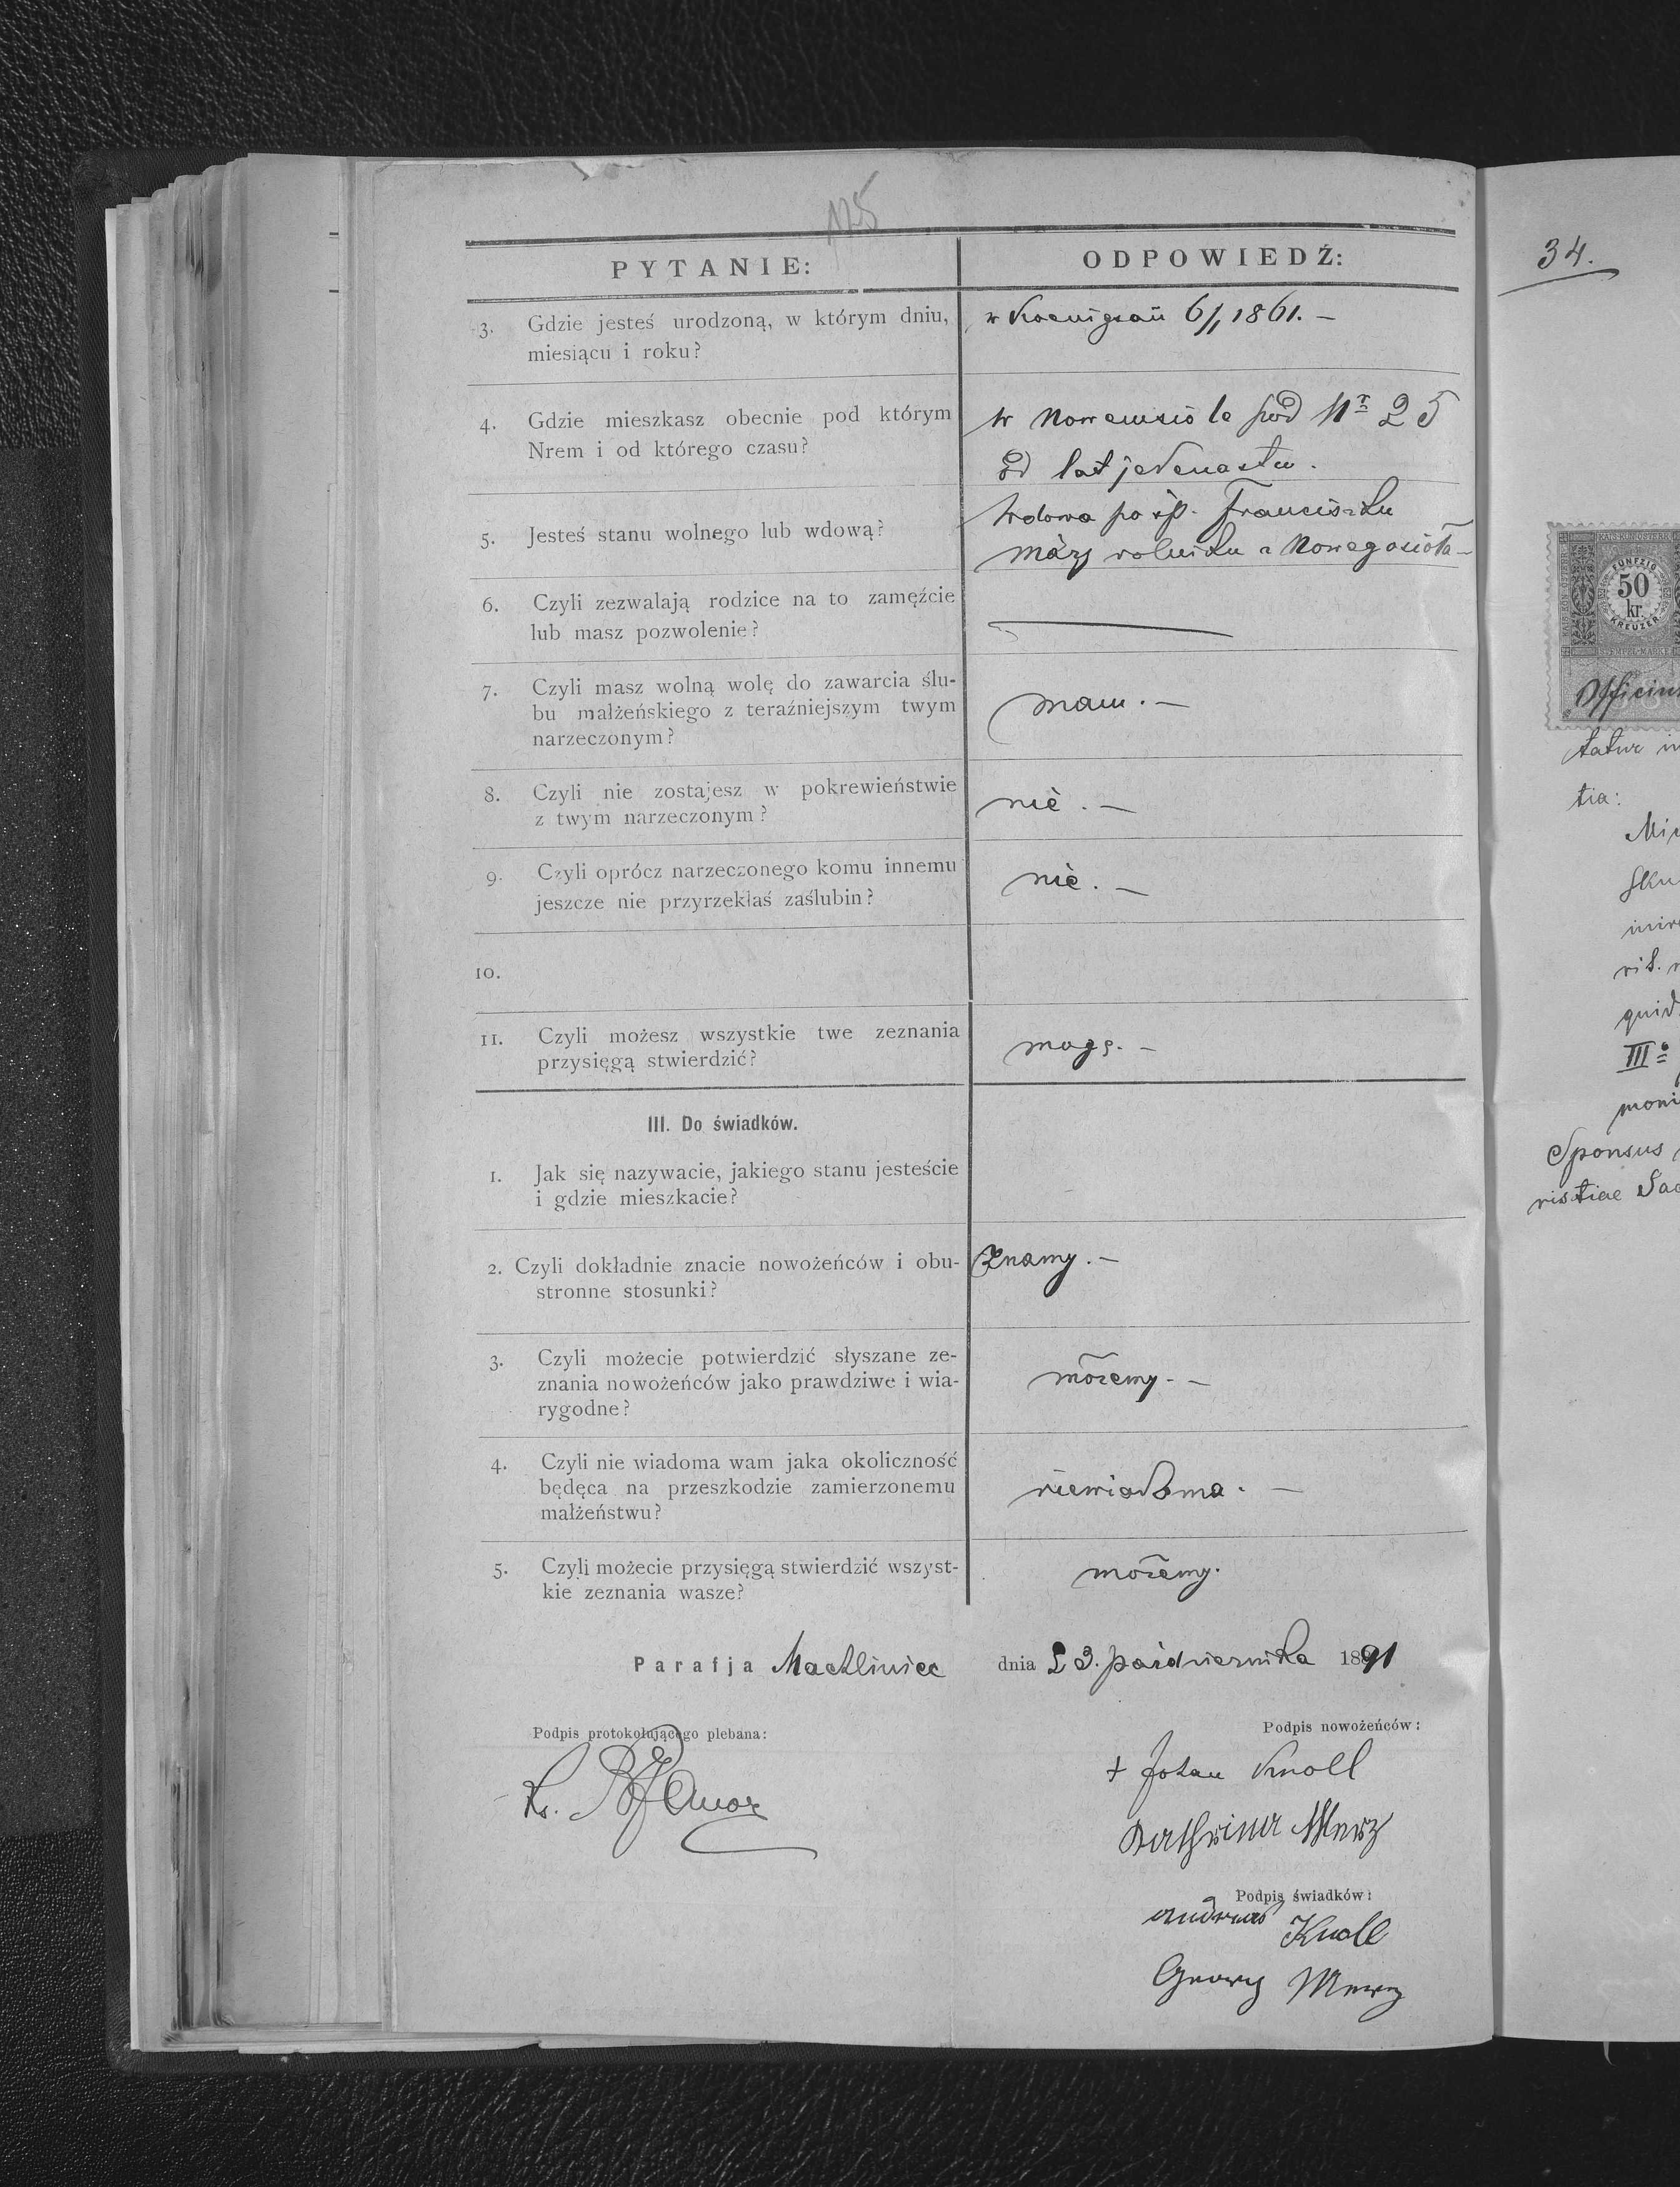 125
PYTANIE:
ODPOWIEDŹ:
3. Gdzie jesteś urodzoną, w którym dniu,
miesiącu i roku?
w Koenigsau 6/1 1861. —
4. Gdzie mieszkasz obecnie pod którym
Nrem i od którego czasu?
w Nowemsiole pod Nr 25
od lat jedenastu.
5. Jesteś stanu wolnego lub wdową?
Wdowa po śp. Franciszku
rolniku z Nowegosioła —
6. Czyli zezwalają rodzice na to zamęźcie
lub masz pozwolenie?
7. Czyli masz wolną wolę do zawarcia ślu-
bu małżeńskiego z teraźniejszym twym
narzeczonym?
mam. —
8. Czyli nie zostajesz w pokrewieństwie
z twym narzeczonym?
nie. —
9. Czyli oprócz narzeczonego komu innemu
jeszcze nie przyrzekłaś zaślubin?
nie. —
10.
11. Czyli możesz wszystkie twe zeznania
przysięgą stwierdzić?
mogę. —
III. Do świadków.
1. Jak się nazywacie, jakiego stanu jesteście
i gdzie mieszkacie?
2. Czyli dokładnie znacie nowożeńców i obu-
stronne stosunki?
Znamy. —
3. Czyli możecie potwierdzić słyszane ze-
znania nowożeńców jako prawdziwe i wia-
rygodne?
możemy. —
4. Czyli nie wiadoma wam jaka okoliczność
będęca na przeszkodzie zamierzonemu
małżeństwu?
niewiadoma. —
5. Czyli możecie przysięgą stwierdzić wszyst-
kie zeznania wasze?
możemy.
Parafja Machliniec dnia 23. października 1891
Podpis protokołującego plebana:
Ks.
Podpis nowożeńców:
+ Johan Knoll
Kathrina Merz
Podpis świadków:
Andreas Knoll
Georg Merz
34.
KAIS. KÖN. ÖSTERR.
FÜNFZIG
50
kr.
KREUZER
STEMPEL-MARKE
tatur in
tia:
quid
III
moni
Sponsus
ristiae Sac